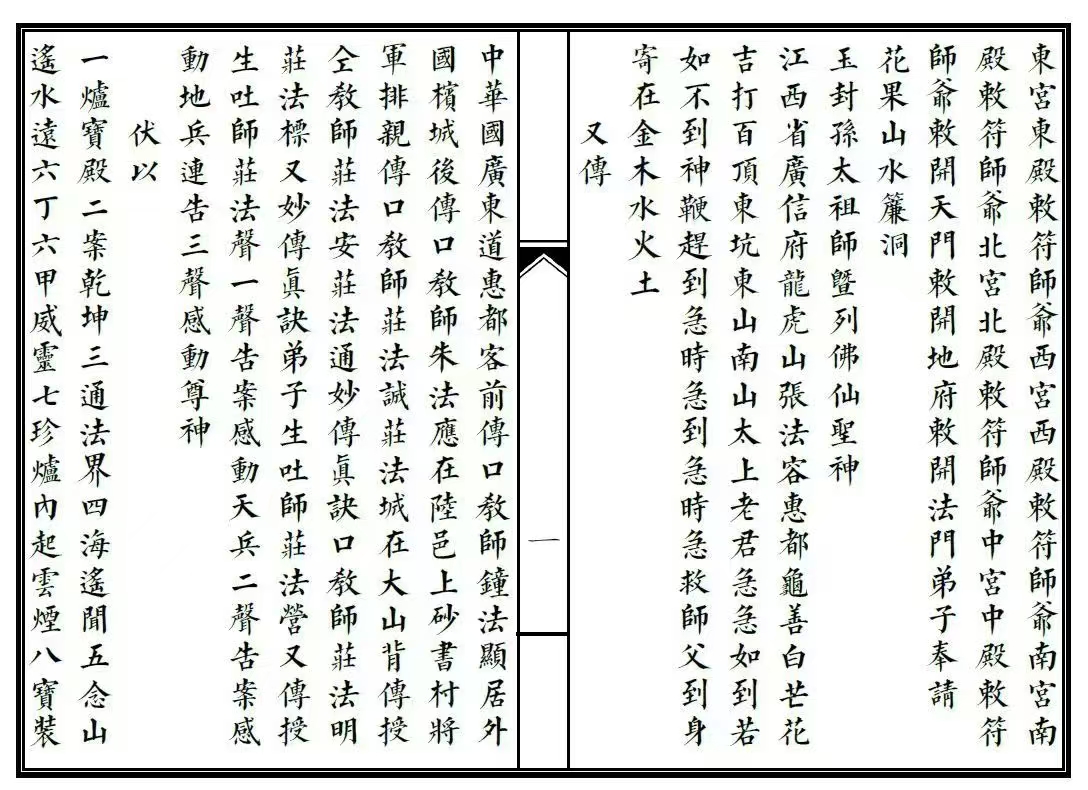 東宮東殿敕符師爺西宮西殿敕符師爺南宮南
殿敕符師爺北宮北殿敕符師爺中宮中殿敕符
師爺敕開天門敕開地府敕開法門弟子奉請
花果山水簾洞
玉封孫太祖師暨列佛仙聖神
江西省廣信府龍虎山張法容惠都龜善白芒花
吉打百頂東坑東山南山太上老君急急如到若
如不到神鞭趕到急時急到急時急救師父到身
寄在金木水火土
又傳
一
中華國廣東道惠都客前傳口教師鐘法顯居外
國檳城後傳口教師朱法應在陸邑上砂書村將
軍排親傳口教師莊法誠莊法城在大山背傳授
仝教師莊法安莊法通妙傳眞訣口教師莊法明
莊法標又妙傳眞訣弟子生吐師莊法營又傳授
生吐師莊法聲一聲告案感動天兵二聲告案感
動地兵連告三聲感動尊神
伏以
一爐寶殿二案乾坤三通法界四海遙聞五念山
遙水遠六丁六甲威靈七珍爐內起雲煙八寶裝